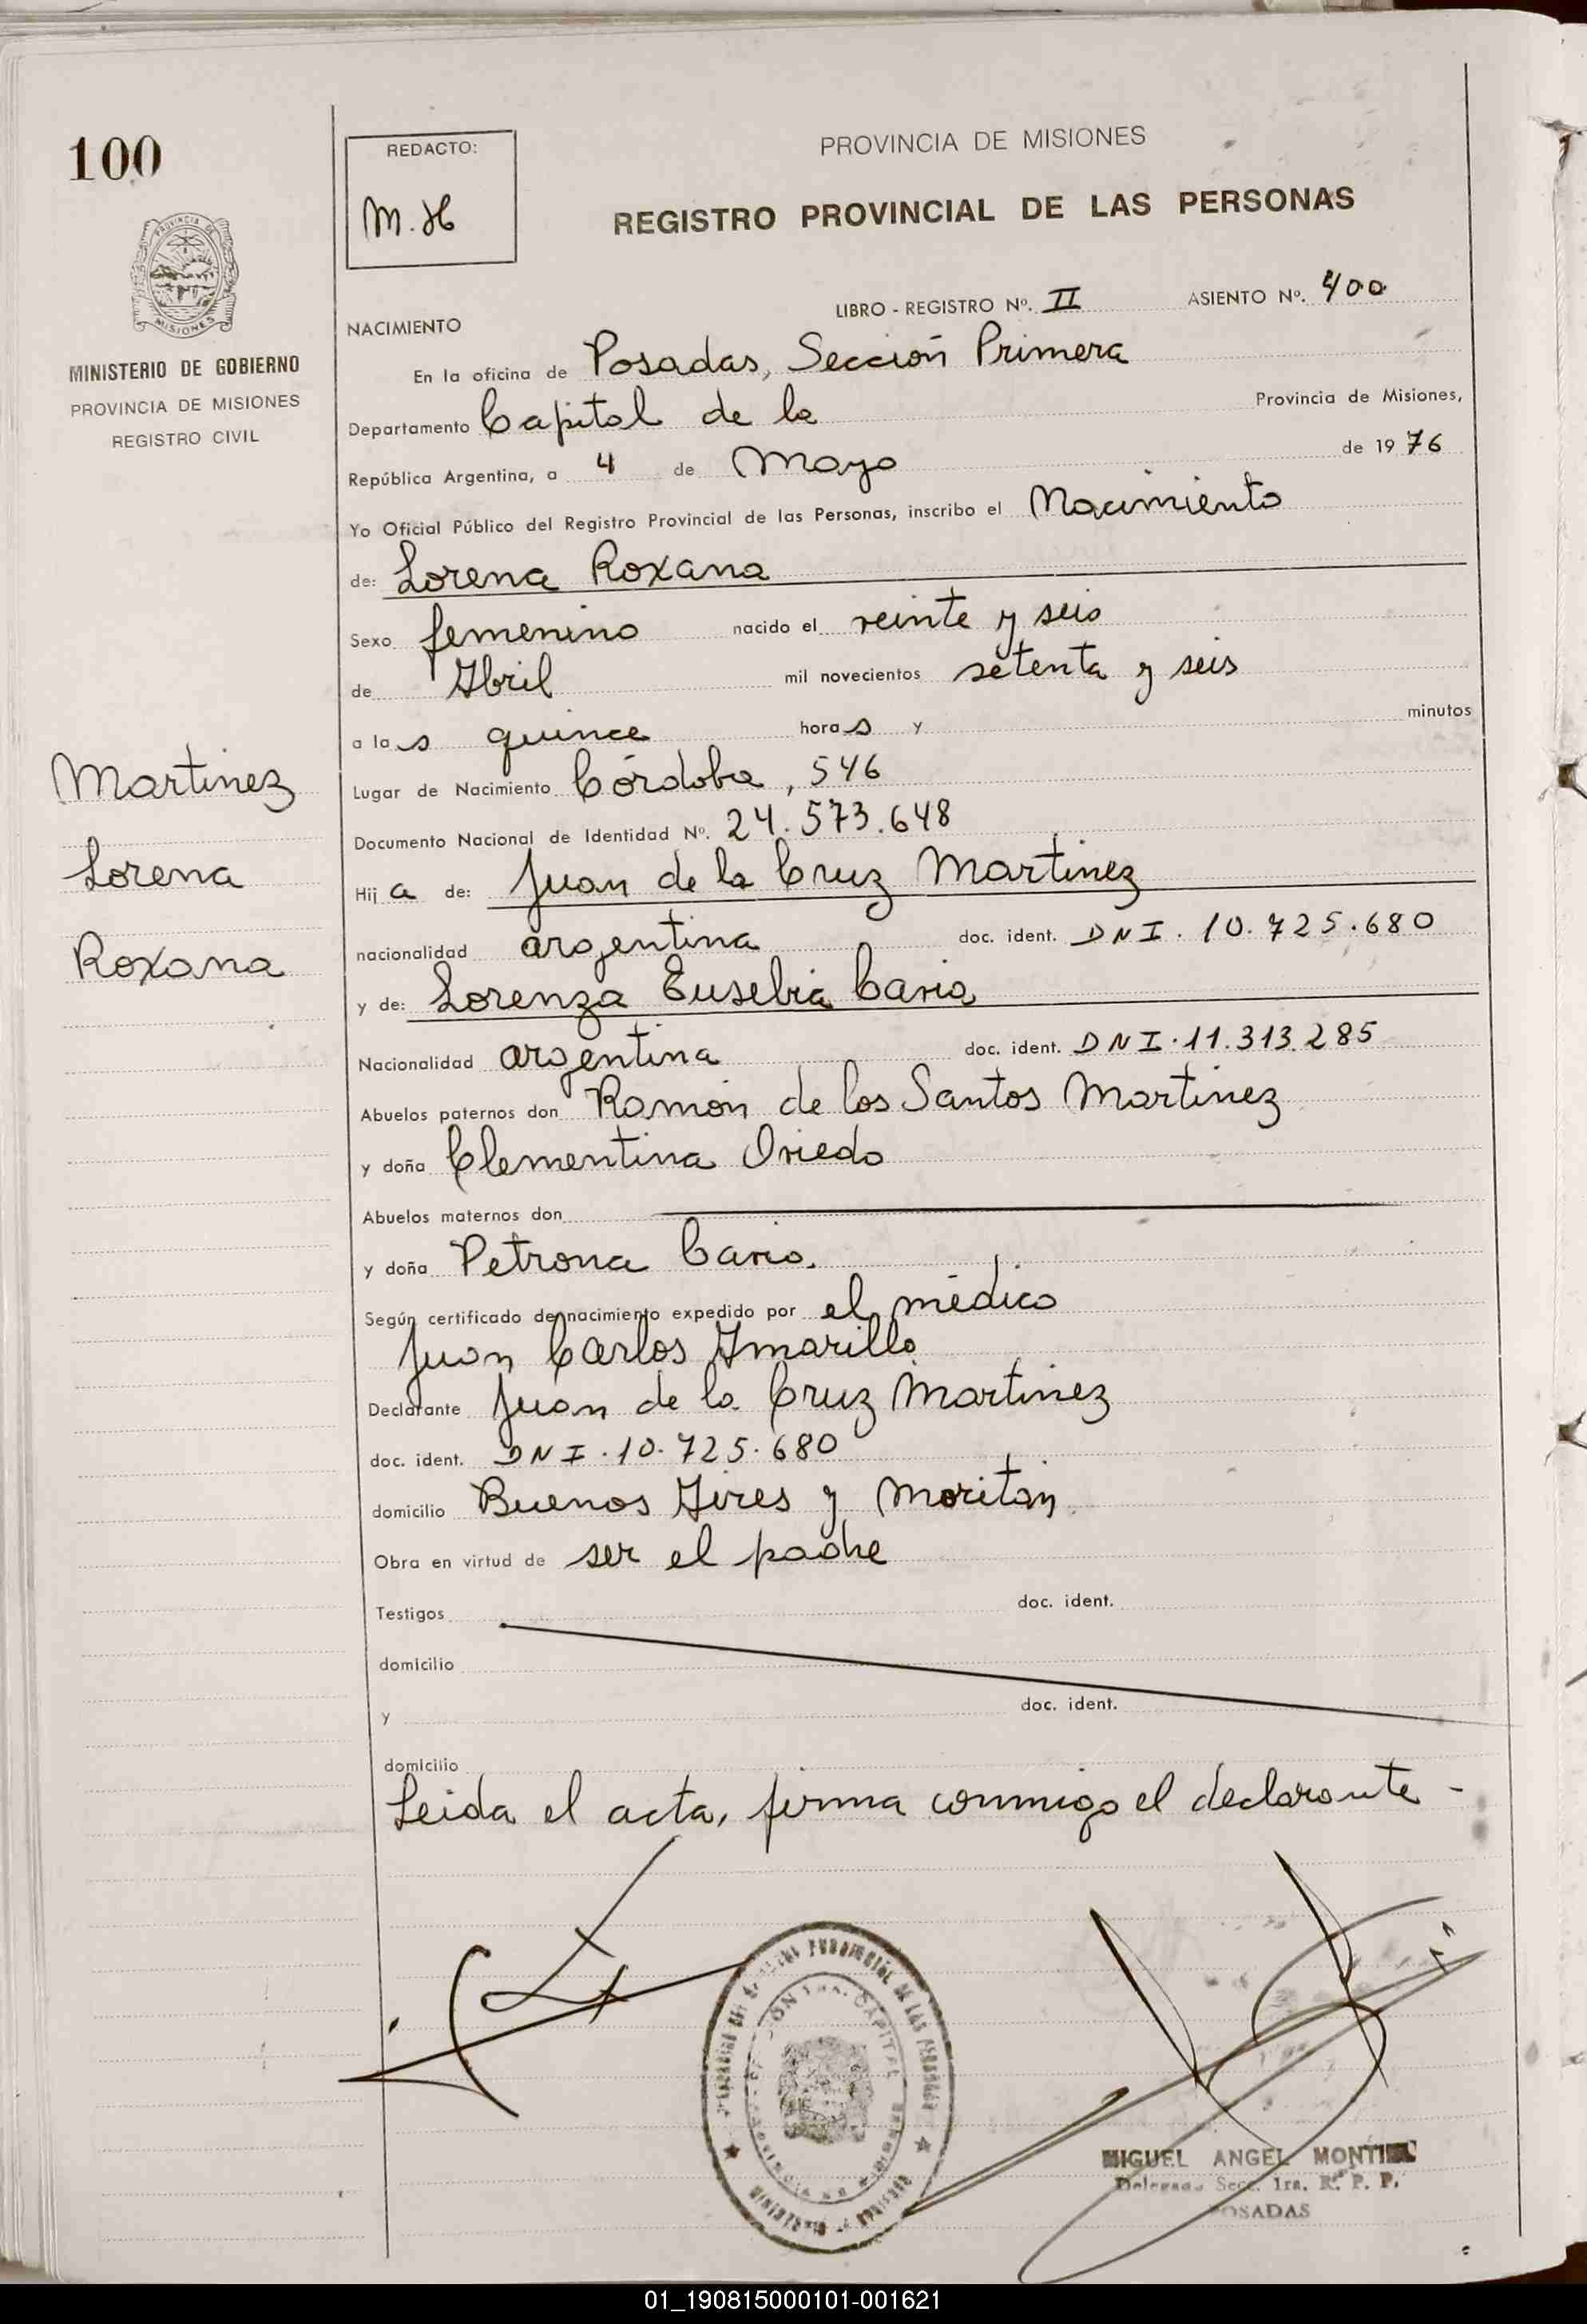 100
REDACTO:
M. H
PROVINCIA DE MISIONES
REGISTRO PROVINCIAL DE LAS PERSONAS
PROVINCIA DE
MISIONES
MINISTERIO DE GOBIERNO
PROVINCIA DE MISIONES
REGISTRO CIVIL
LIBRO - REGISTRO Nº. II ASIENTO Nº. 400
NACIMIENTO
En la oficina de Posadas, Sección Primera
Departamento Capital de la Provincia de Misiones,
República Argentina, a 4 de Mayo de 1976
Yo Oficial Público del Registro Provincial de las Personas, inscribo el Nacimiento
de: Lorena Roxana
Sexo femenino nacido el veinte y seis
de Abril mil novecientos setenta y seis
a las quince horas y minutos
Lugar de Nacimiento Córdoba, 546
Documento Nacional de Identidad Nº. 24.573.648
Hija de: Juan de la Cruz Martinez
nacionalidad argentina doc. ident. DNI. 10.725.680
y de: Lorenza Eusebia
Nacionalidad argentina doc. ident. DNI. 11.313.285
Abuelos paternos don Ramón de los Santos Martinez
y doña Clementina Oviedo
Abuelos maternos don
y doña Petrona
Según certificado de nacimiento expedido por el médico
Juan Carlos Amarillo
Declarante Juan de la Cruz Martinez
doc. ident. DNI. 10.725.680
domicilio Buenos Aires y Moritán
Obra en virtud de ser el padre
Testigos doc. ident.
domicilio
y doc. ident.
domicilio
Leida el acta, firma conmigo el declarante -
Martinez
Lorena
Roxana
MIGUEL ANGEL MONTIEL
Delegado Secc. 1ra. R. P. P.
POSADAS
01_190815000101-001621